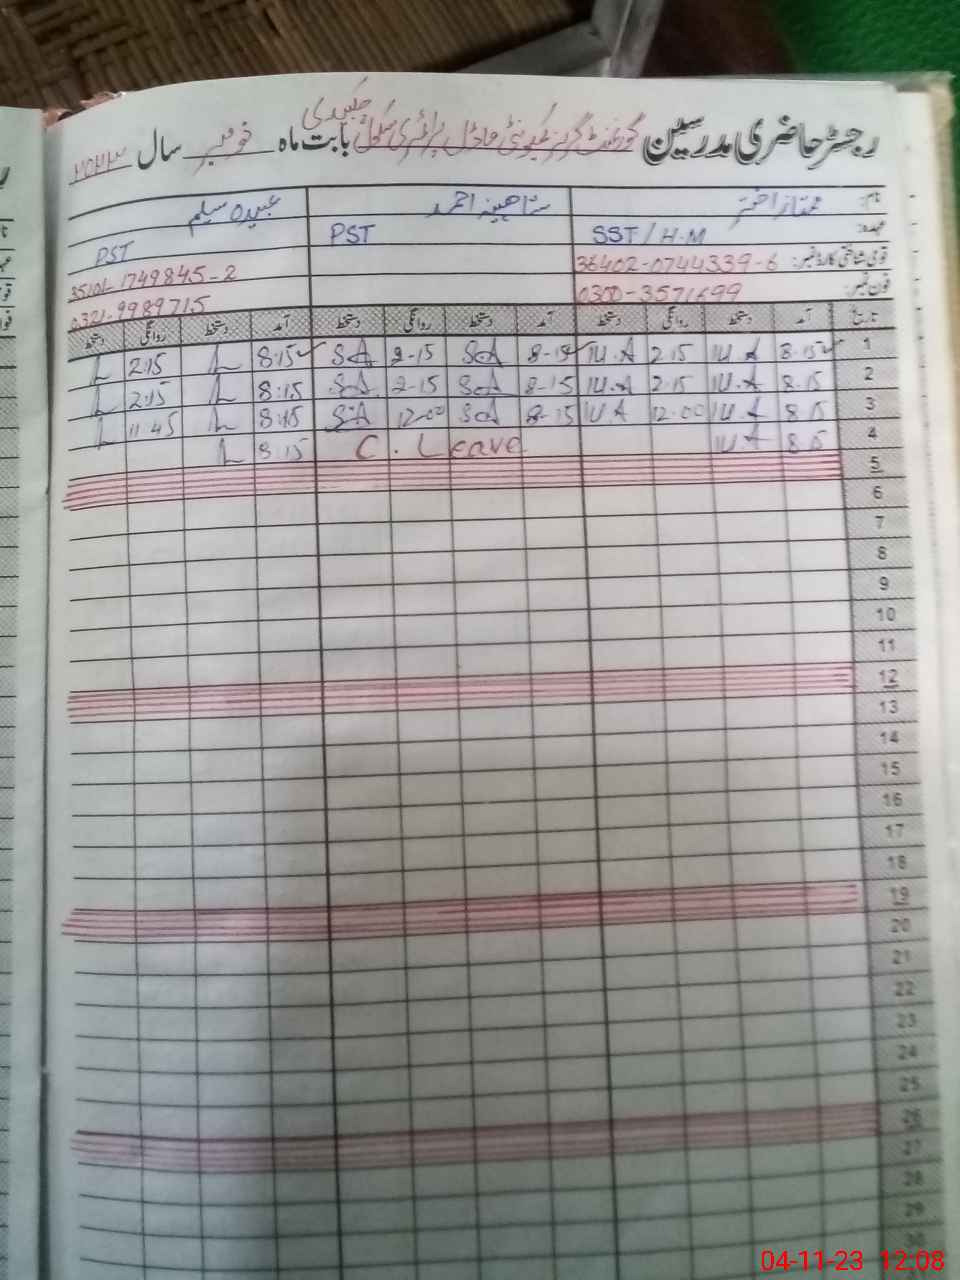 رجسٹر حاضری مدرسین گورنمنٹ گرلز کمیونٹی ماڈل پرائمری سکول بابت ماہ نومبر سال ۲۰۲۳
نام: ممتاز اختر شاہینہ احمد عبیدہ سلیم
عہدہ: SST/H-M PST PST
قومی شناختی کارڈ نمبر: 36402-0744339-6 35101-1749845-2
فون نمبر: 0321-9989715
تاریخ آمد دستخط روانگی دستخط آمد دستخط روانگی دستخط آمد دستخط روانگی دستخط
1 8.15 2.15 8-15 S.A 2-15 S.A 8:15 2:15
2 8.15 2.15 8-15 S.A 2-15 S.A 8:15 2:15
3 8.15 12.00 8-15 S.A 12-00 S.A 8:15 11:45
4 8.15 C. Leave 8:15
5
6
7
8
9
10
11
12
13
14
15
16
17
18
19
20
21
22
23
24
25
26
27
28
29
30
04-11-23 12:08